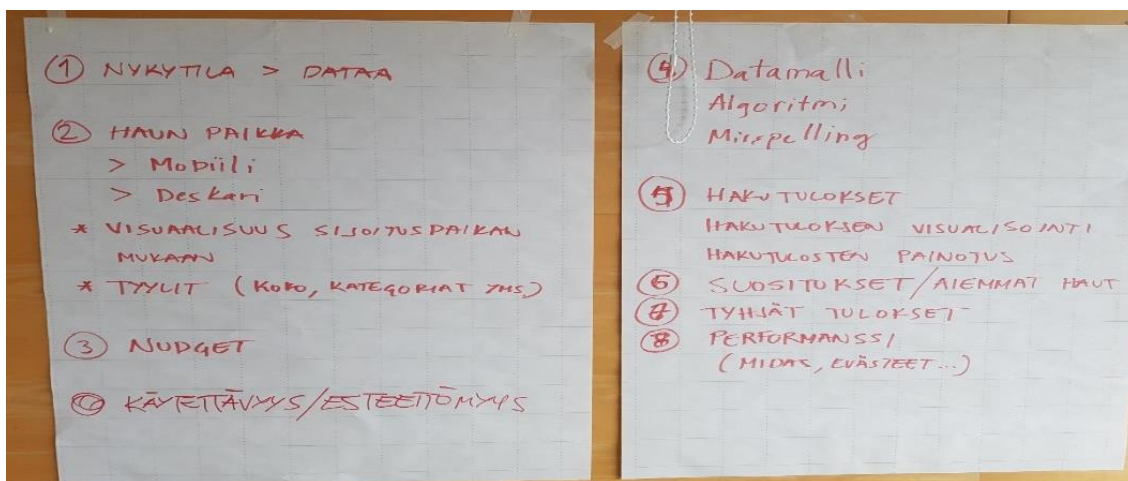 ① NYKYTILA > DATAA
② HAUN PAIKKA
> Mobiili
> Deskari
* VISUAALISUUS SIJOITUSPAIKAN
MUKAAN
* TYYLIT (KOKO, KATEGORIAT YMS)
③ NUDGET
KÄYTETTÄVYYS/ESTEETTÖMYYS
④ Datamalli
Algoritmi
Misspelling
⑤ HAKUTULOKSET
HAKUTULOKSEN VISUALISOINTI
HAKUTULOSTEN PAINOTUS
⑥ SUOSITUKSET/AIEMMAT HAUT
⑦ TYHJÄT TULOKSET
⑧ PERFORMANSSI
(MIDAS, EVÄSTEET...)